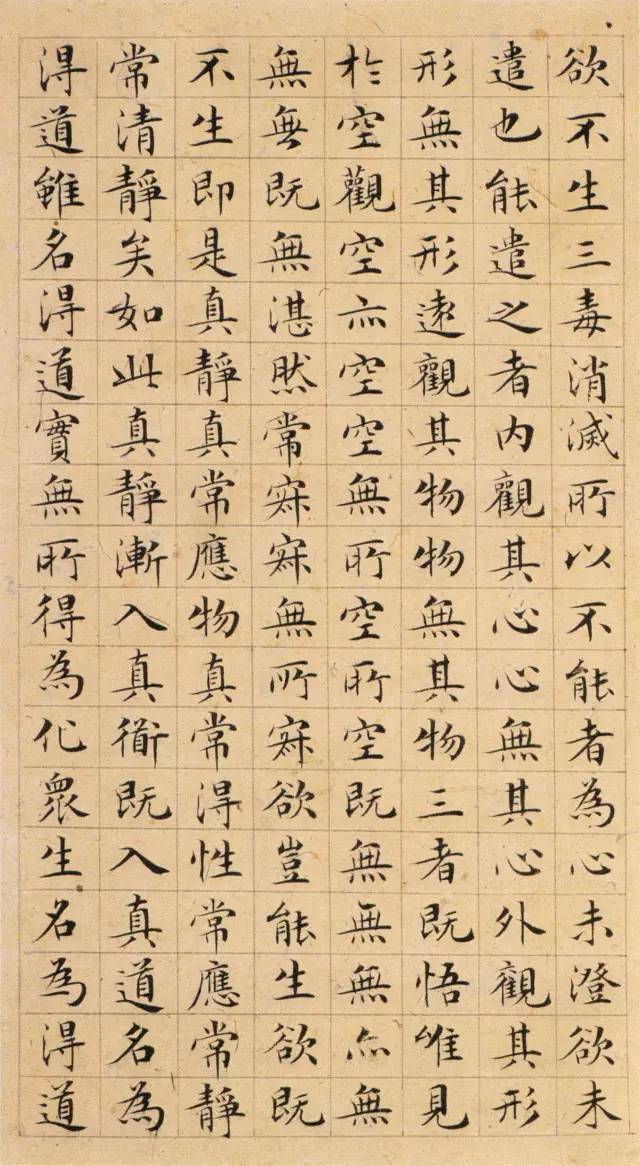 欲不生三毒消滅所以不能者為心未澄欲未
遣也能遣之者內觀其心心無其心外觀其形
形無其形遠觀其物物無其物三者既悟唯見
於空觀空亦空空無所空所空既無無無亦無
無無既無湛然常寂寂無所寂欲豈能生欲既
不生即是真靜真常應物真常得性常應常靜
常清靜矣如此真靜漸入真道既入真道名為
得道雖名得道實無所得為化眾生名為得道